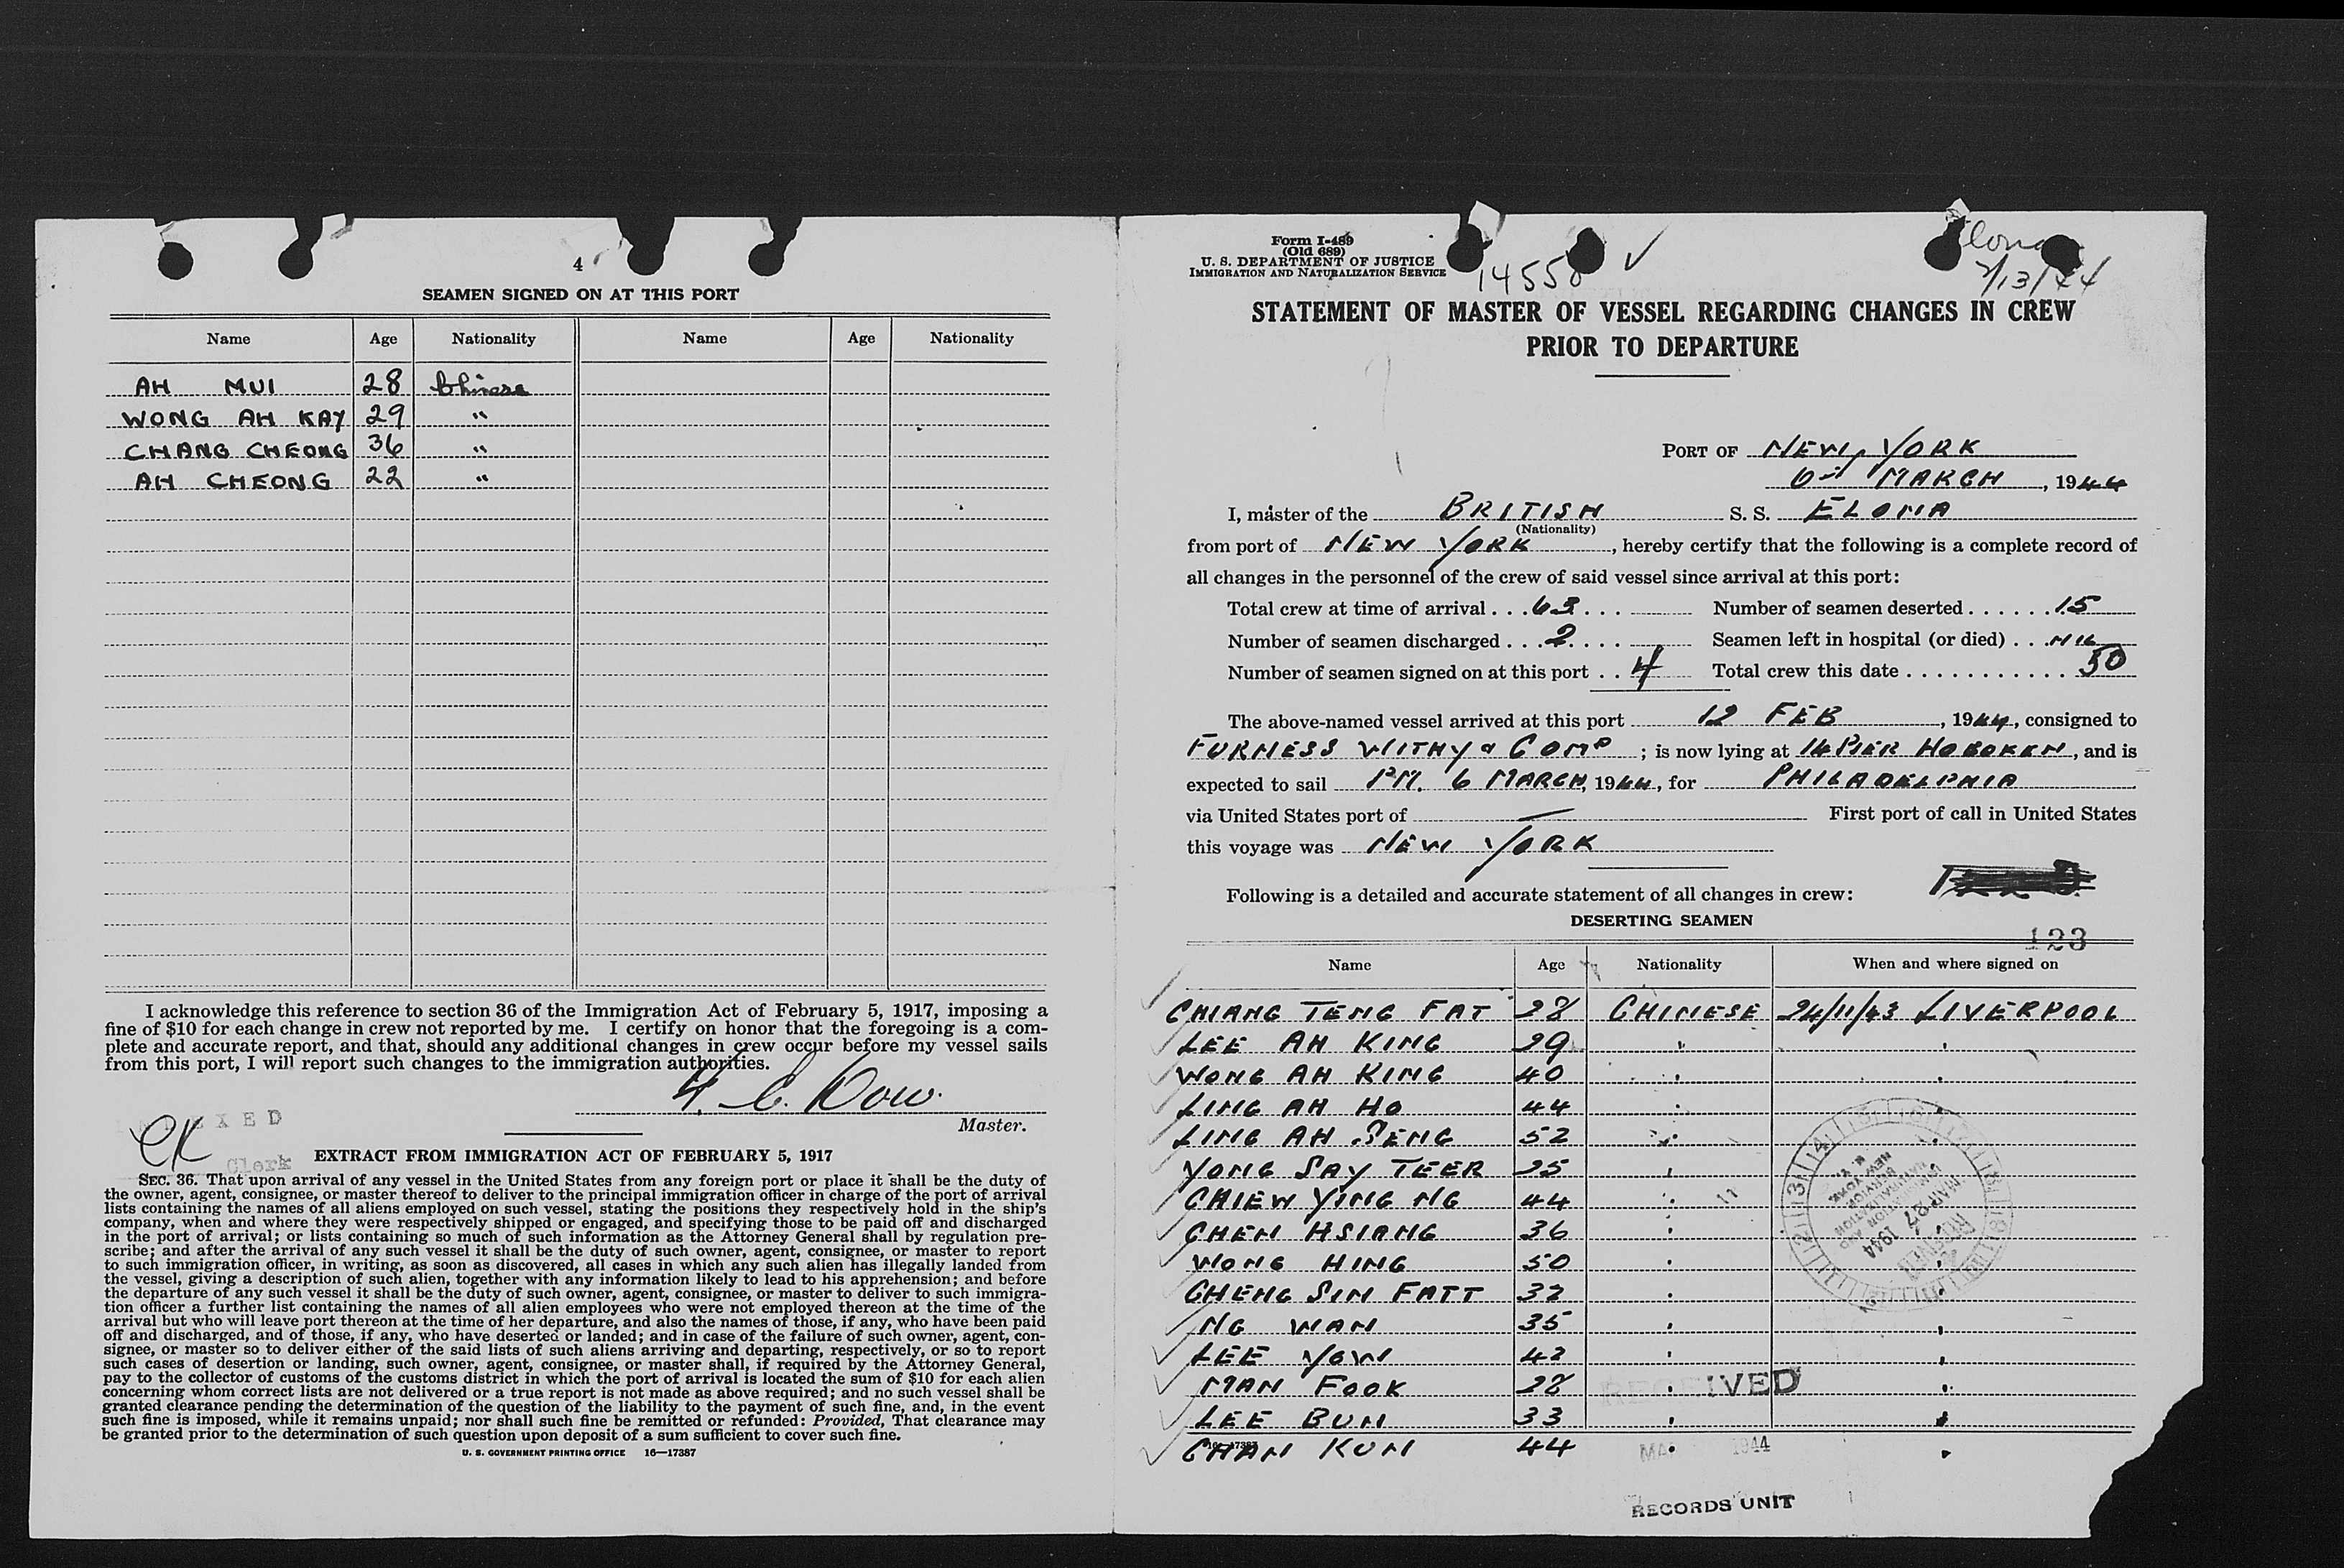 4
SEAMEN SIGNED ON AT THIS PORT
Name Age Nationality Name Age Nationality
AH MUI 28 Chinese
WONG AH KAY 29 "
CHANG CHEONG 36 "
AH CHEONG 22 "
I acknowledge this reference to section 36 of the Immigration Act of February 5, 1917, imposing a
fine of $10 for each change in crew not reported by me. I certify on honor that the foregoing is a com-
plete and accurate report, and that, should any additional changes in crew occur before my vessel sails
from this port, I will report such changes to the immigration authorities.
Master.
CK
Clerk
EXTRACT FROM IMMIGRATION ACT OF FEBRUARY 5, 1917
SEC. 36. That upon arrival of any vessel in the United States from any foreign port or place it shall be the duty of
the owner, agent, consignee, or master thereof to deliver to the principal immigration officer in charge of the port of arrival
lists containing the names of all aliens employed on such vessel, stating the positions they respectively hold in the ship's
company, when and where they were respectively shipped or engaged, and specifying those to be paid off and discharged
in the port of arrival; or lists containing so much of such information as the Attorney General shall by regulation pre-
scribe; and after the arrival of any such vessel it shall be the duty of such owner, agent, consignee, or master to report
to such immigration officer, in writing, as soon as discovered, all cases in which any such alien has illegally landed from
the vessel, giving a description of such alien, together with any information likely to lead to his apprehension; and before
the departure of any such vessel it shall be the duty of such owner, agent, consignee, or master to deliver to such immigra-
tion officer a further list containing the names of all alien employees who were not employed thereon at the time of the
arrival but who will leave port thereon at the time of her departure, and also the names of those, if any, who have been paid
off and discharged, and of those, if any, who have deserted or landed; and in case of the failure of such owner, agent, con-
signee, or master so to deliver either of the said lists of such aliens arriving and departing, respectively, or so to report
such cases of desertion or landing, such owner, agent, consignee, or master shall, if required by the Attorney General,
pay to the collector of customs of the customs district in which the port of arrival is located the sum of $10 for each alien
concerning whom correct lists are not delivered or a true report is not made as above required; and no such vessel shall be
granted clearance pending the determination of the question of the liability to the payment of such fine, and, in the event
such fine is imposed, while it remains unpaid; nor shall such fine be remitted or refunded: Provided, That clearance may
be granted prior to the determination of such question upon deposit of a sum sufficient to cover such fine.
U. S. GOVERNMENT PRINTING OFFICE 16—17387
Form I-489
(Old 689)
U. S. DEPARTMENT OF JUSTICE
IMMIGRATION AND NATURALIZATION SERVICE
14550
STATEMENT OF MASTER OF VESSEL REGARDING CHANGES IN CREW
PRIOR TO DEPARTURE
PORT OF NEW YORK
MARCH, 1944
I, master of the BRITISH S. S. ELONA
(Nationality)
from port of NEW YORK, hereby certify that the following is a complete record of
all changes in the personnel of the crew of said vessel since arrival at this port:
Total crew at time of arrival . . . 63 . . . Number of seamen deserted . . . . . . 15
Number of seamen discharged . . . 2 . . . . Seamen left in hospital (or died) . . . NIL
Number of seamen signed on at this port . . 4 Total crew this date . . . . . . . . . . . . 50
The above-named vessel arrived at this port 12 FEB, 1944, consigned to
FURNESS WITHY & COMP; is now lying at 16 PIER HOBOKEN, and is
expected to sail PM. 6 MARCH, 1944, for PHILADELPHIA
via United States port of — First port of call in United States
this voyage was NEW YORK
Following is a detailed and accurate statement of all changes in crew:
DESERTING SEAMEN
123
Name Age Nationality When and where signed on
CHIANG TENG FAT 28 CHINESE 24/11/43 LIVERPOOL
LEE AH KING 29 " "
WONG AH KING 40 " "
LING AH HO 44 " "
LING AH SENG 52 " "
YONG SAY TEER 25 " "
CHIEW YING NG 44 " "
CHEN HSIANG 36 " "
WONG HING 50 " "
CHENG SIN FATT 32 " "
NG WAN 35 " "
LEE YOW 42 " "
MAN FOOK 28 " "
LEE BUN 33 " "
CHAN KUN 44 " "
RECEIVED
1944
RECORDS UNIT